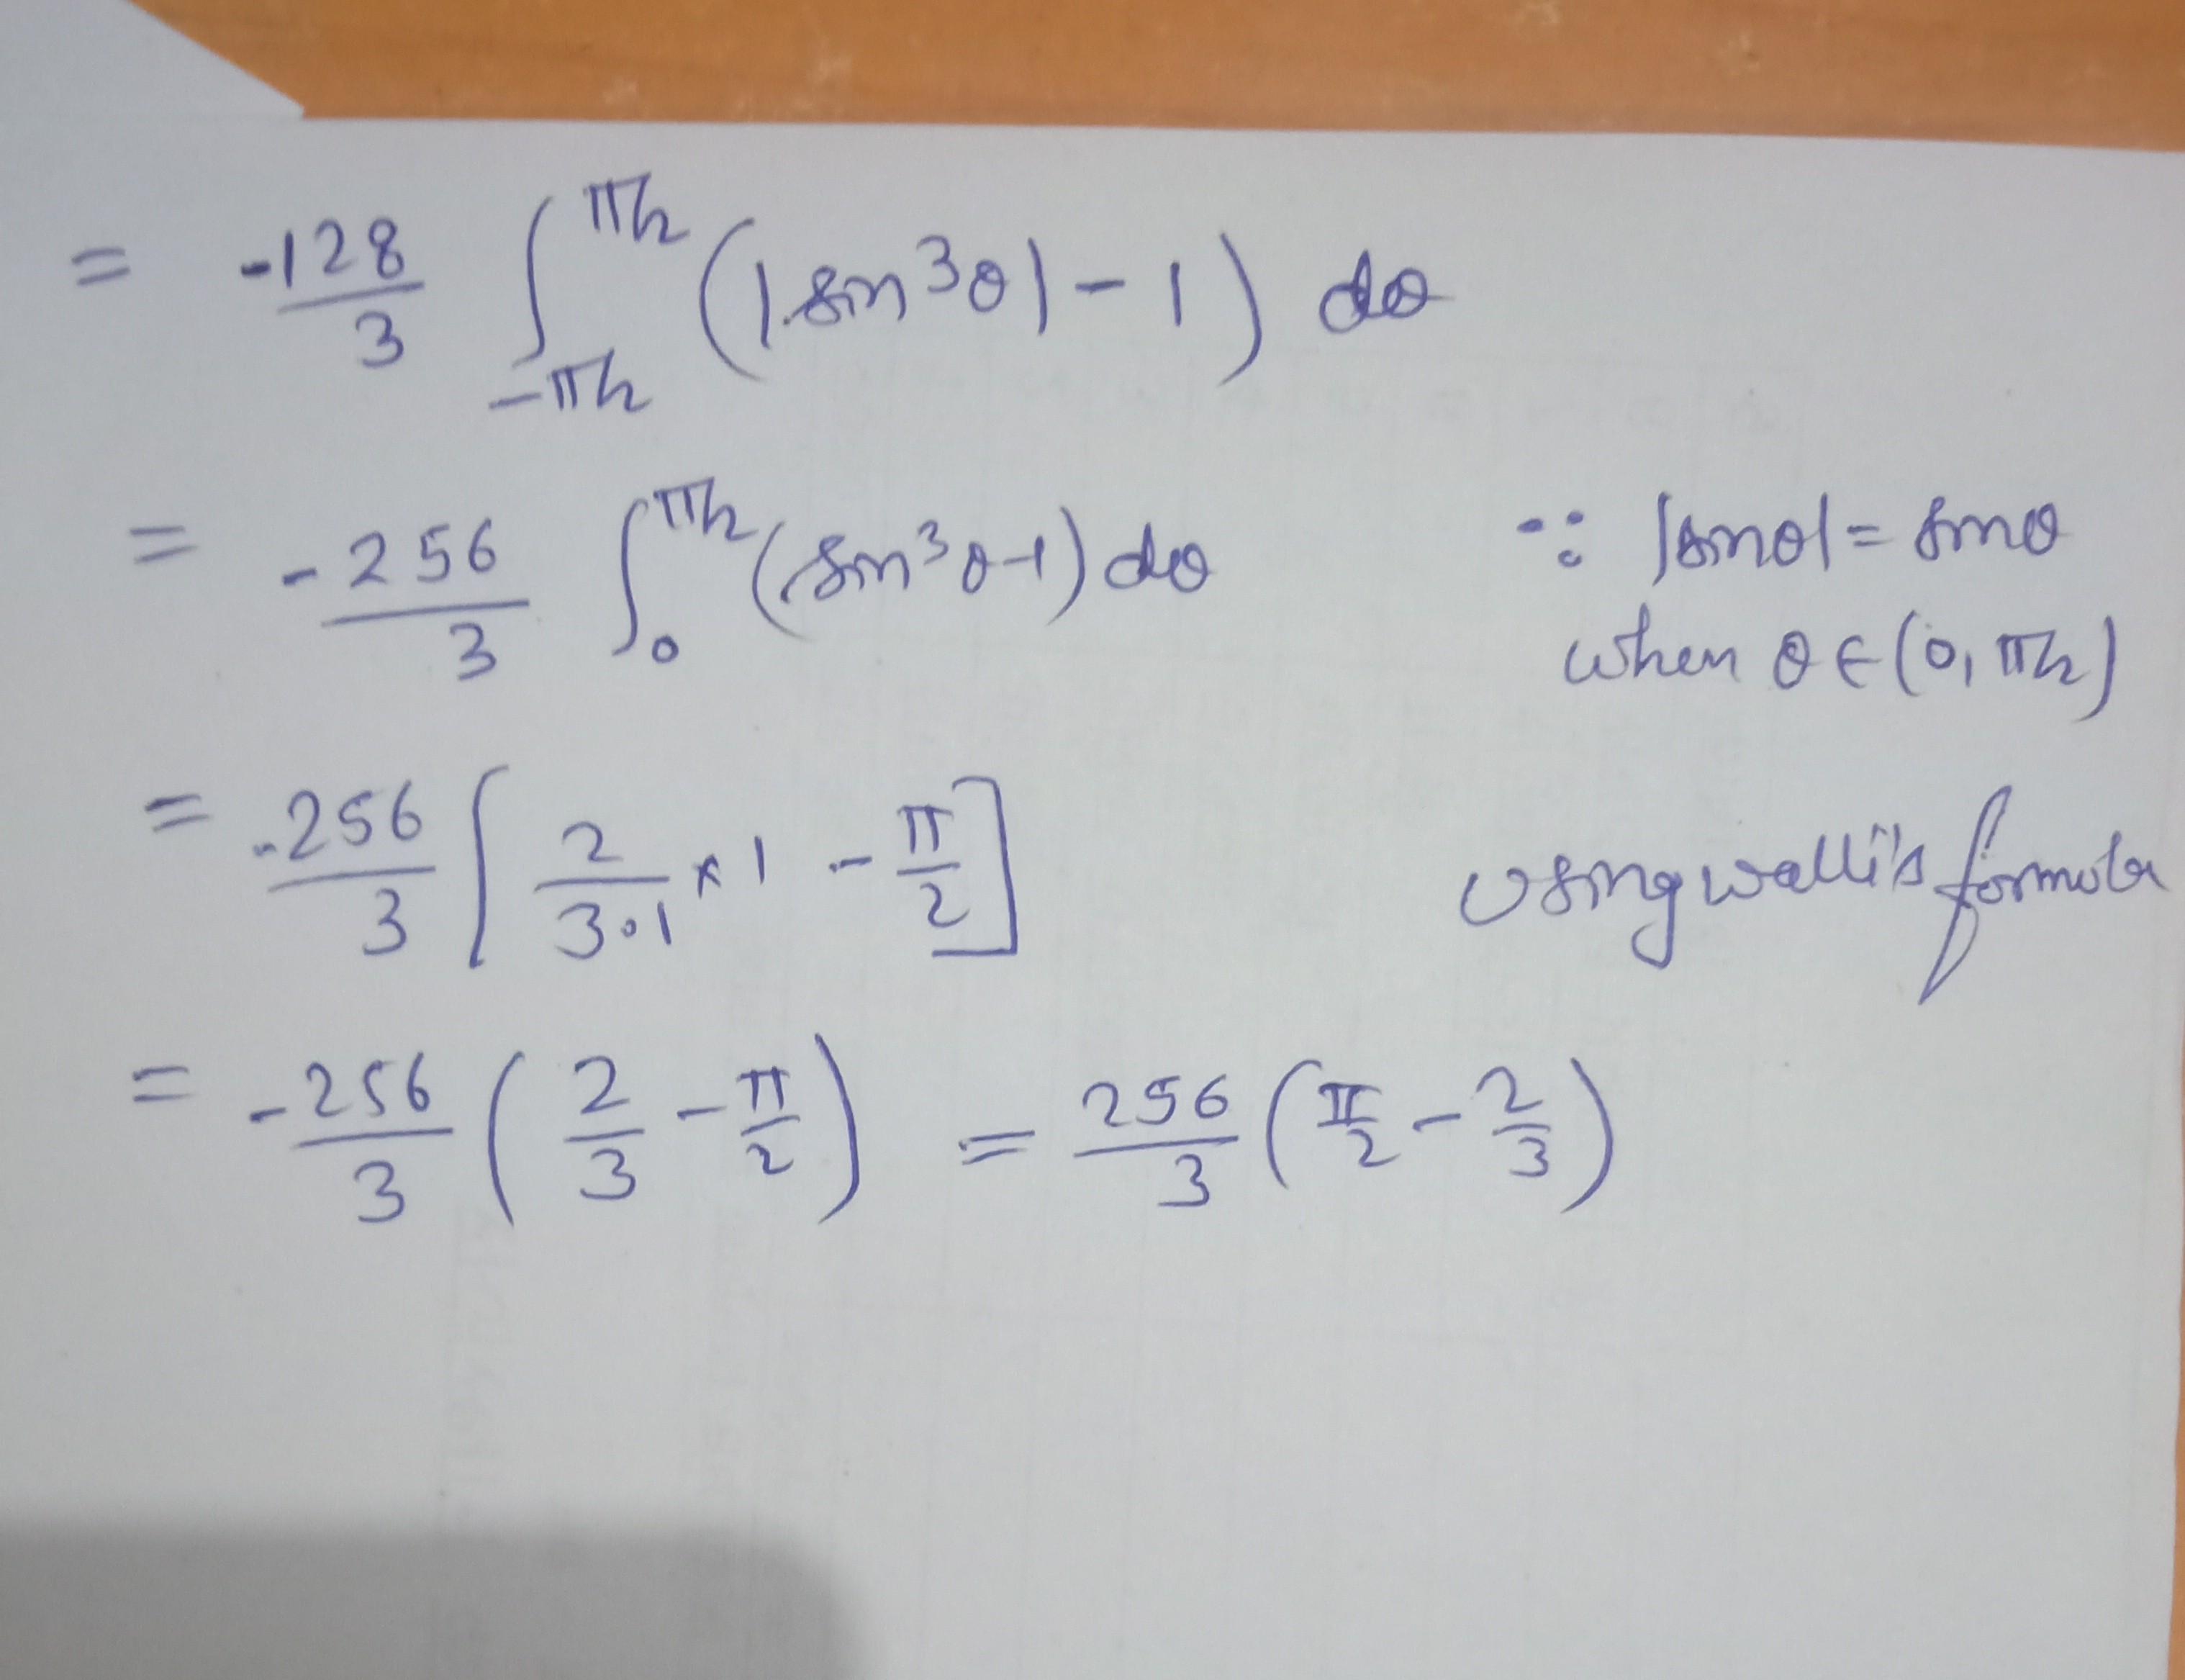 = -128/3 ∫_{-π/2}^{π/2} (|sin³θ| - 1) dθ
= -256/3 ∫_0^{π/2} (sin³θ-1) dθ ∵ |sinθ| = sinθ
when θ ∈ (0, π/2)
= -256/3 [2/3·1 × 1 - π/2] using walli's formula
= -256/3 (2/3 - π/2) = 256/3 (π/2 - 2/3)